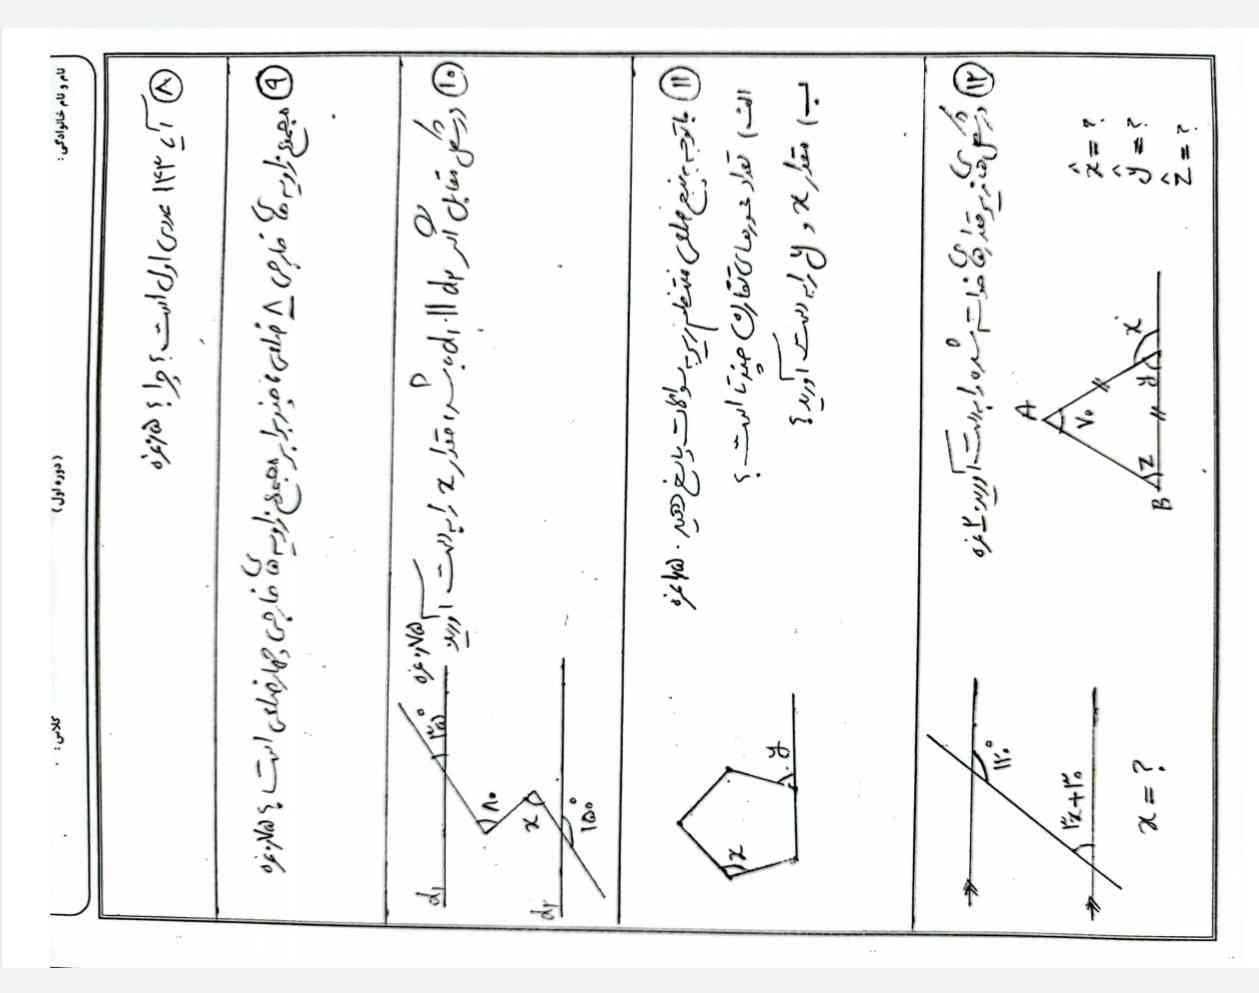 نام و نام خانوادگی :
(دوره اول)
کلاس :
۸ آیا ۱۴۳ عددی اول است؟ چرا؟ ۰/۵ نمره
۹ مجموع زاویه های خارجی ۸ ضلعی چند برابر مجموع زاویه های خارجی چهارضلعی است؟ ۰/۷۵ نمره
۱۰ در شکل مقابل اگر d₁ || d₂ باشد، مقدار x را بدست آورید ۰/۷۵ نمره
d₁
۱۳۵°
۸۰
x
d₂
۱۵۰°
۱۱ با توجه به پنج ضلعی منتظم زیر به سوالات پاسخ دهید.
الف) تعداد محورهای تقارن چند تا است؟
ب) مقدار x و y را بدست آورید؟
x
y
۱۲ در شکل های زیر مقدار های خواسته شده را بدست آورید. ۲ نمره
A
۷۰
B
z
y
x
x̂ = ?
ŷ = ?
ẑ = ?
۱۲۰°
۳x+۳۰
x = ?